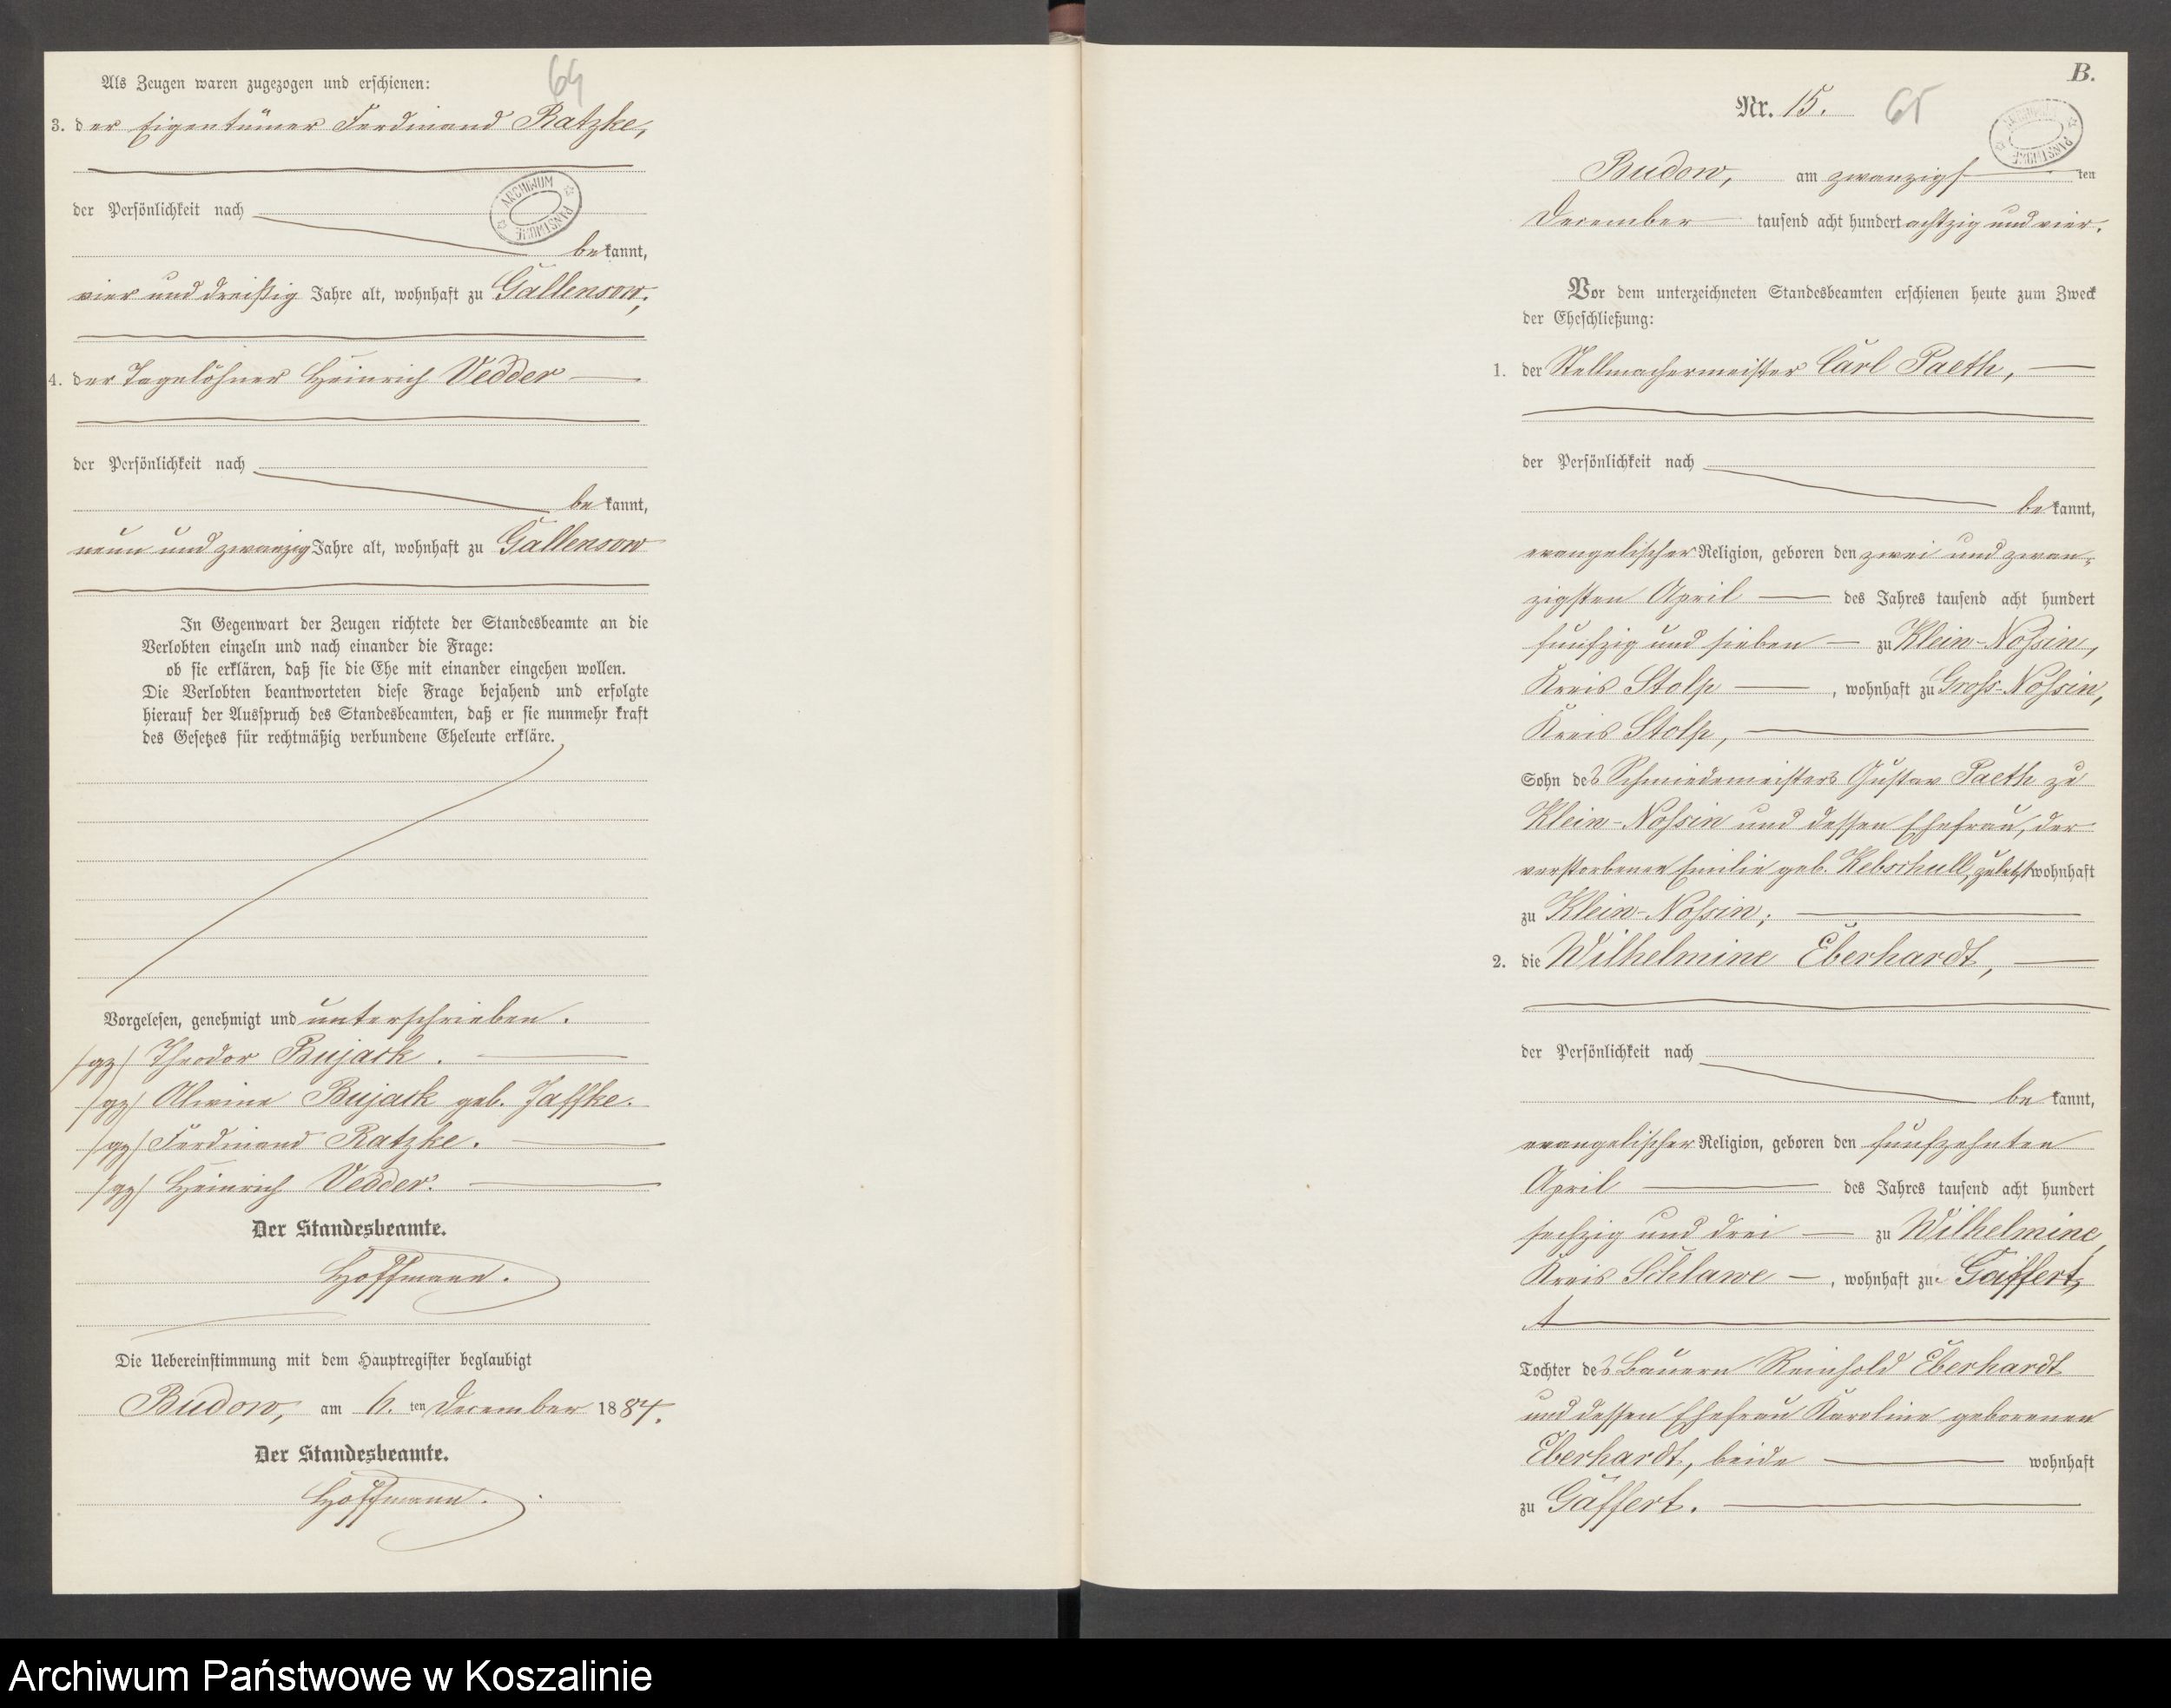 64
Als Zeugen waren zugezogen und erschienen:
3. der Eigentümer Ferdinand Ratzke,
ARCHIWUM PAŃSTWOWE
der Persönlichkeit nach
bekannt,
vier und dreißig Jahre alt, wohnhaft zu Gallensow;
4. der Tagelöhner Heinrich Vedder
der Persönlichkeit nach
bekannt,
neun und zwanzig Jahre alt, wohnhaft zu Gallensow
In Gegenwart der Zeugen richtete der Standesbeamte an die
Verlobten einzeln und nach einander die Frage:
ob sie erklären, daß sie die Ehe mit einander eingehen wollen.
Die Verlobten beantworteten diese Frage bejahend und erfolgte
hierauf der Ausspruch des Standesbeamten, daß er sie nunmehr kraft
des Gesetzes für rechtmäßig verbundene Eheleute erkläre.
Vorgelesen, genehmigt und unterschrieben.
/gz/ Theodor Bujack.
/gz/ Alwine Bujack geb. Jaffke.
/gz/ Ferdinand Ratzke.
/gz/ Heinrich Vedder.
Der Standesbeamte.
Hoffmann.
Die Uebereinstimmung mit dem Hauptregister beglaubigt
Budow, am 6. ten December 1884.
Der Standesbeamte.
Hoffmann.
B.
Nr. 15. 65
Budow, am zwanzigs ten
December tausend acht hundert achtzig und vier.
Vor dem unterzeichneten Standesbeamten erschienen heute zum Zweck
der Eheschließung:
1. der Stellmachermeister Carl Paeth,
der Persönlichkeit nach
bekannt,
evangelischer Religion, geboren den zwei und zwan-
zigsten April des Jahres tausend acht hundert
fünfzig und sieben zu Klein-Nossin,
Kreis Stolp, wohnhaft zu Gross-Nossin,
Kreis Stolp,
Sohn des Schmiedemeisters Gustav Paeth zu
Klein-Nossin und dessen Ehefrau, der
verstorbenen Emilie geb. Kebschull, zuletzt wohnhaft
zu Klein-Nossin;
2. die Wilhelmine Eberhardt,
der Persönlichkeit nach
bekannt,
evangelischer Religion, geboren den fünfzehnten
April des Jahres tausend acht hundert
sechzig und drei zu Wilhelmine,
Kreis Schlawe, wohnhaft zu Gaffert,
Tochter des Bauern Reinhold Eberhardt
und dessen Ehefrau Karoline geborenen
Eberhardt, beide wohnhaft
zu Gaffert.
Archiwum Państwowe w Koszalinie